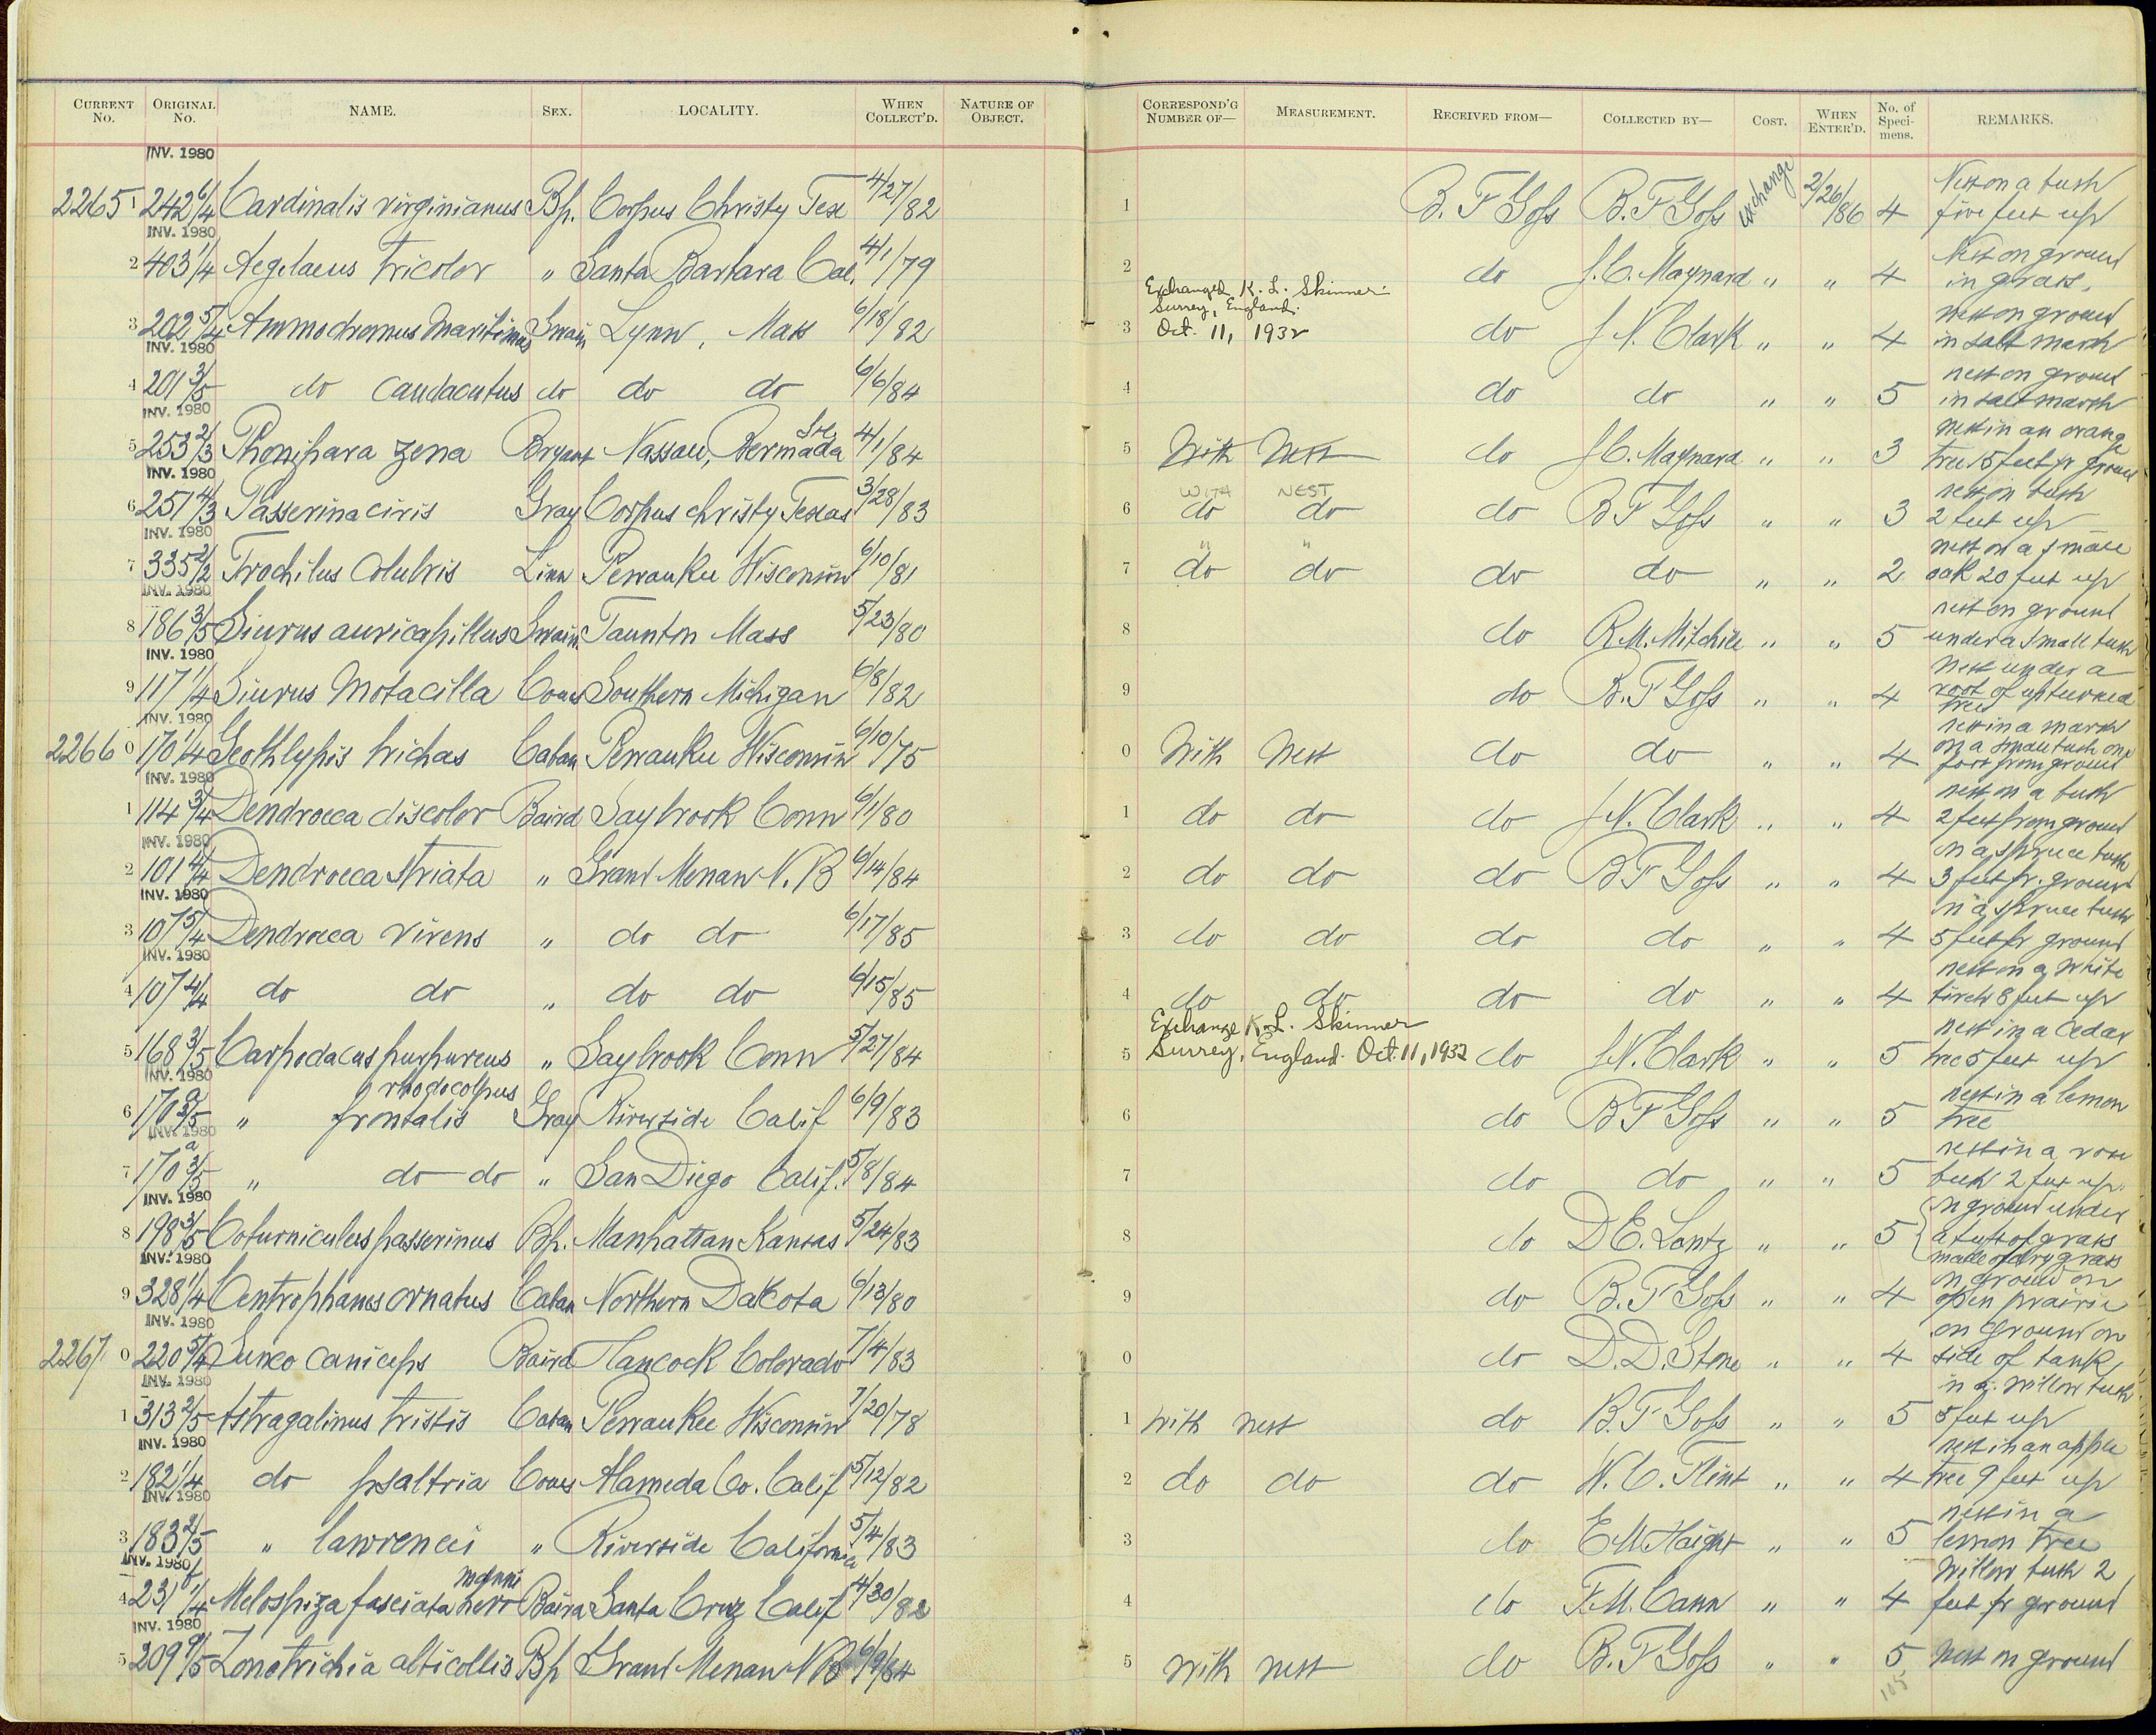 CURRENT No. ORIGINAL No. NAME. SEX. LOCALITY. WHEN COLLECT'D. NATURE OF OBJECT. CORRESPOND'G NUMBER OF— MEASUREMENT. RECEIVED FROM— COLLECTED BY— COST. WHEN ENTER'D. No. of Specimens. REMARKS.
INV. 1980
2265 1 242 6/4 Cardinalis virginianus Bp. Corpus Christy Tex 4/27/82 1 B. F Goss B. F Goss exchange 2/26/86 4 Nest on a bush five feet up
INV. 1980
2 403 1/4 Aegelaeus tricolor " Santa Barbara Cal. 4/1/79 2 do J. C. Maynard " " 4 Nest on ground in grass.
Exchanged K. L. Skinner
Surrey, England.
3 202 5/4 Ammodromus maritimus Swain Lynn, Mass 6/18/82 3 Oct. 11, 1932 do J. N. Clark " " 4 nest on ground in salt marsh
INV. 1980
4 201 3/5 do caudacutus do do do 6/6/84 4 do do " " 5 nest on ground in salt marsh
INV. 1980
5 253 2/3 Phonipara zena Bryant Nassau, Bermuda 4/1/84 5 With Nest do J. C. Maynard " " 3 nest in an orange tree 15 feet fr ground
INV. 1980
WITH NEST
6 251 4/3 Passerina ciris Gray Corpus christy Texas 3/28/83 6 do do do B F Goss " " 3 nest in bush 2 feet up
INV. 1980
" "
7 335 2/2 Trochilus Colubris Linn Pewaukee Wisconsin 6/10/81 7 do do do do " " 2 nest on a small oak 20 feet up
INV. 1980
8 186 3/5 Siurus auricapillus Swain. Taunton Mass 5/23/80 8 do R. M. Mitchell " " 5 nest on ground under a small bush
INV. 1980
9 117 1/4 Siurus Motacilla Coues Southern Michigan 6/8/82 9 do B. F Goss " " 4 Nest under a root of upturned tree
INV. 1980
2266 0 170 1/4 Geothlypis trichas Caban Pewaukee Wisconsin 6/10/75 0 With Nest do do " " 4 nest in a marsh on a small bush one foot from ground
INV. 1980
1 114 3/4 Dendroeca discolor Baird Saybrook Conn 6/1/80 1 do do do J. N. Clark " " 4 nest on a bush 2 feet from ground
INV. 1980
2 101 4/4 Dendroeca Striata " Grand Menan N. B 6/14/84 2 do do do B F Goss " " 4 in a spruce bush 3 feet fr. ground
INV. 1980
3 107 5/4 Dendroeca virens " do do 6/17/85 3 do do do do " " 4 in a spruce bush 5 feet fr ground
INV. 1980
4 107 4/4 do do " do do 6/15/85 4 do do do do " " 4 nest on a white birch 8 feet up
Exchange K. L. Skinner
5 168 3/5 Carpodacus purpureus " Saybrook Conn 5/27/84 5 Surrey, England. Oct. 11, 1932 do J. N. Clark " " 5 nest in a cedar tree 5 feet up
INV. 1980
rhodocolpus
6 170 a 2/5 " frontalis Gray Riverside Calif 6/9/83 6 do B F Goss " " 5 nest in a lemon tree
INV. 1980
7 170 a 3/5 " do do " San Diego Calif. 5/8/84 7 do do " " 5 nest in a rose bush 2 feet up.
INV. 1980
8 198 3/5 Coturniculus passerinus Bp. Manhattan Kansas 5/24/83 8 do D E. Lantz " " 5 on ground under a tuft of grass made of dry grass
INV. 1980
9 328 1/4 Centrophanes ornatus Caban Northern Dakota 6/13/80 9 do B. F Goss " " 4 on ground on open prairie
INV. 1980
2267 0 220 5/4 Junco caniceps Baird Hancock Colorado 7/4/83 0 do D. D. Stone " " 4 on ground on side of bank
INV. 1980
1 313 2/5 Astragalinus tristis Caban Pewaukee Wisconsin 7/20/78 1 With nest do B. F Goss " " 5 in a willow bush 5 feet up
INV. 1980
2 182 1/4 do psaltria Coues Alameda Co. Calif 5/12/82 2 do do do W. C. Flint " " 4 nest in an apple tree 9 feet up
INV. 1980
3 183 2/5 " lawrencei " Riverside California 5/4/83 3 do E M Haight " " 5 nest in a lemon tree
INV. 1980
4 231 1/4 Melospiza fasciata Baird Santa Cruz Calif 4/30/82 4 do F. M. Cann " " 4 Willow bush 2 feet fr ground
INV. 1980
5 209 9/5 Zonotrichia albicollis Bp Grand Menan N B 6/9/84 5 With nest do B. F Goss " " 5 Nest on ground
105